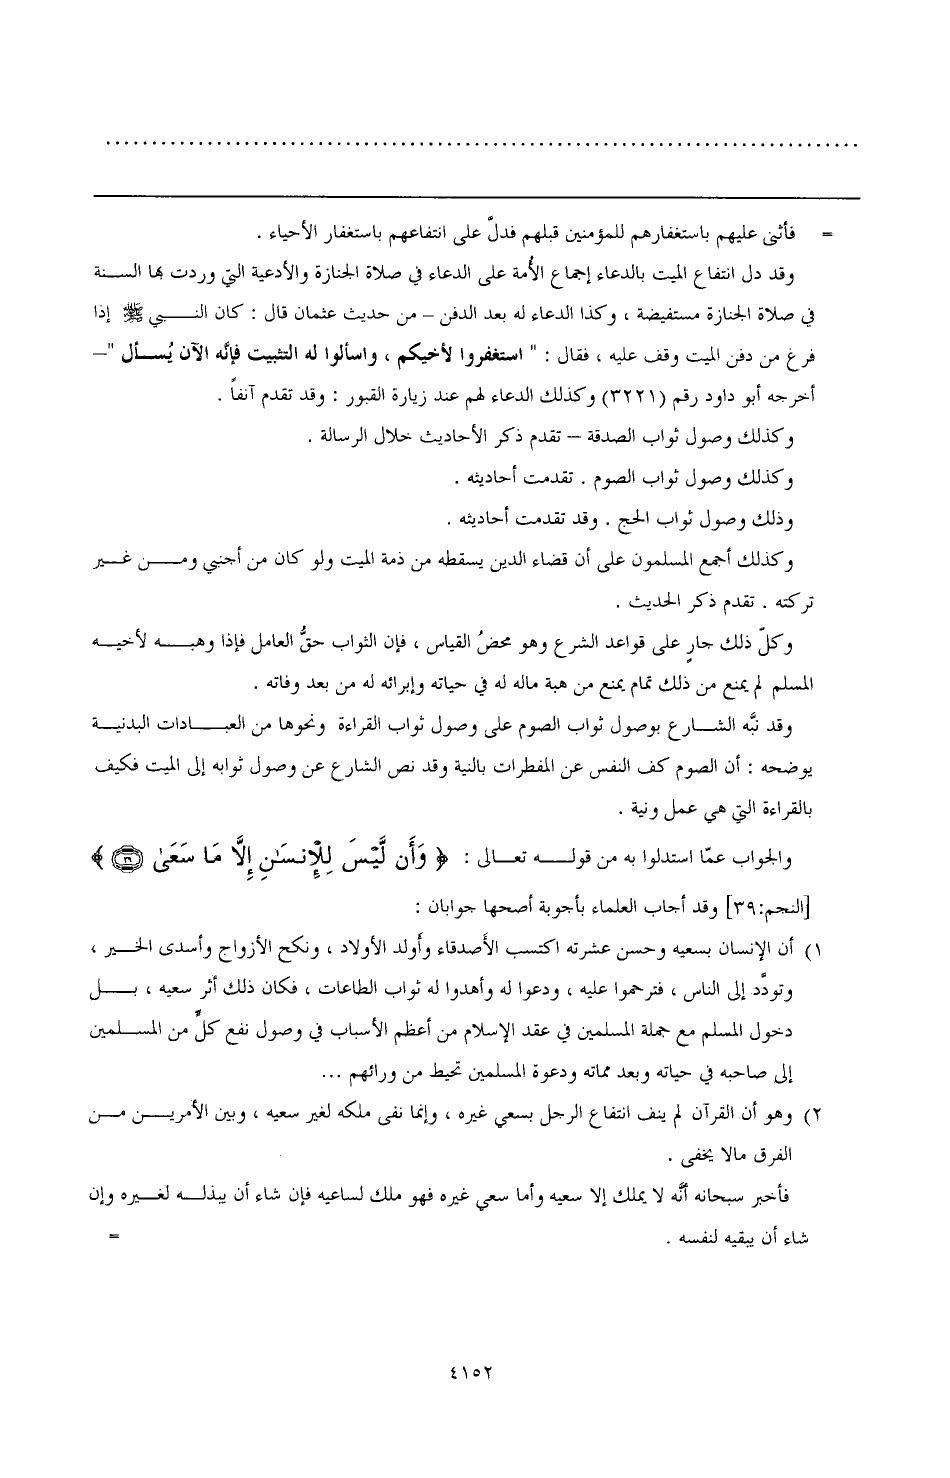 = فأثنى عليهم باستغفارهم للمؤمنين قبلهم فدلَّ على انتفاعهم باستغفار الأحياء .
وقد دل انتفاع الميت بالدعاء إجماع الأُمة على الدعاء في صلاة الجنازة والأدعية التي وردت بها السنة
في صلاة الجنازة مستفيضة ، وكذا الدعاء له بعد الدفن – من حديث عثمان قال : كان النبي ﷺ إذا
فرغ من دفن الميت وقف عليه ، فقال : " استغفروا لأخيكم ، واسألوا له التثبيت فإنَّه الآن يُسأل "–
أخرجه أبو داود رقم (٣٢٢١) وكذلك الدعاء لهم عند زيارة القبور : وقد تقدم آنفاً .
وكذلك وصول ثواب الصدقة – تقدم ذكر الأحاديث خلال الرسالة .
وكذلك وصول ثواب الصوم . تقدمت أحاديثه .
وذلك وصول ثواب الحج . وقد تقدمت أحاديثه .
وكذلك أجمع المسلمون على أن قضاء الدين يسقطه من ذمة الميت ولو كان من أجنبي ومن غير
تركته . تقدم ذكر الحديث .
وكلّ ذلك جارٍ على قواعد الشرع وهو محضُ القياس ، فإن الثواب حقُّ العامل فإذا وهبه لأخيه
المسلم لم يمنع من ذلك تمام يمنع من هبة ماله له في حياته وإبرائه له من بعد وفاته .
وقد نبَّه الشارع بوصول ثواب الصوم على وصول ثواب القراءة ونحوها من العبادات البدنية
يوضحه : أن الصوم كف النفس عن المفطرات بالنية وقد نص الشارع عن وصول ثوابه إلى الميت فكيف
بالقراءة التي هي عمل ونية .
والجواب عمّا استدلوا به من قوله تعالى : ﴿ وَأَن لَّيْسَ لِلْإِنسَـٰنِ إِلَّا مَا سَعَىٰ ٣٩ ﴾
[النجم:٣٩] وقد أجاب العلماء بأجوبة أصحها جوابان :
١) أن الإنسان بسعيه وحسن عشرته اكتسب الأصدقاء وأولد الأولاد ، ونكح الأزواج وأسدى الخير ،
وتودَّد إلى الناس ، فترحموا عليه ، ودعوا له وأهدوا له ثواب الطاعات ، فكان ذلك أثر سعيه ، بل
دخول المسلم مع جملة المسلمين في عقد الإسلام من أعظم الأسباب في وصول نفع كلٍّ من المسلمين
إلى صاحبه في حياته وبعد مماته ودعوة المسلمين تحيط من ورائهم ...
٢) وهو أن القرآن لم ينف انتفاع الرجل بسعي غيره ، وإنما نفى ملكه لغير سعيه ، وبين الأمرين من
الفرق مالا يخفى .
فأخبر سبحانه أنَّه لا يملك إلا سعيه وأما سعي غيره فهو ملك لساعيه فإن شاء أن يبذله لغيره وإن
شاء أن يبقيه لنفسه . =
٤١٥٢